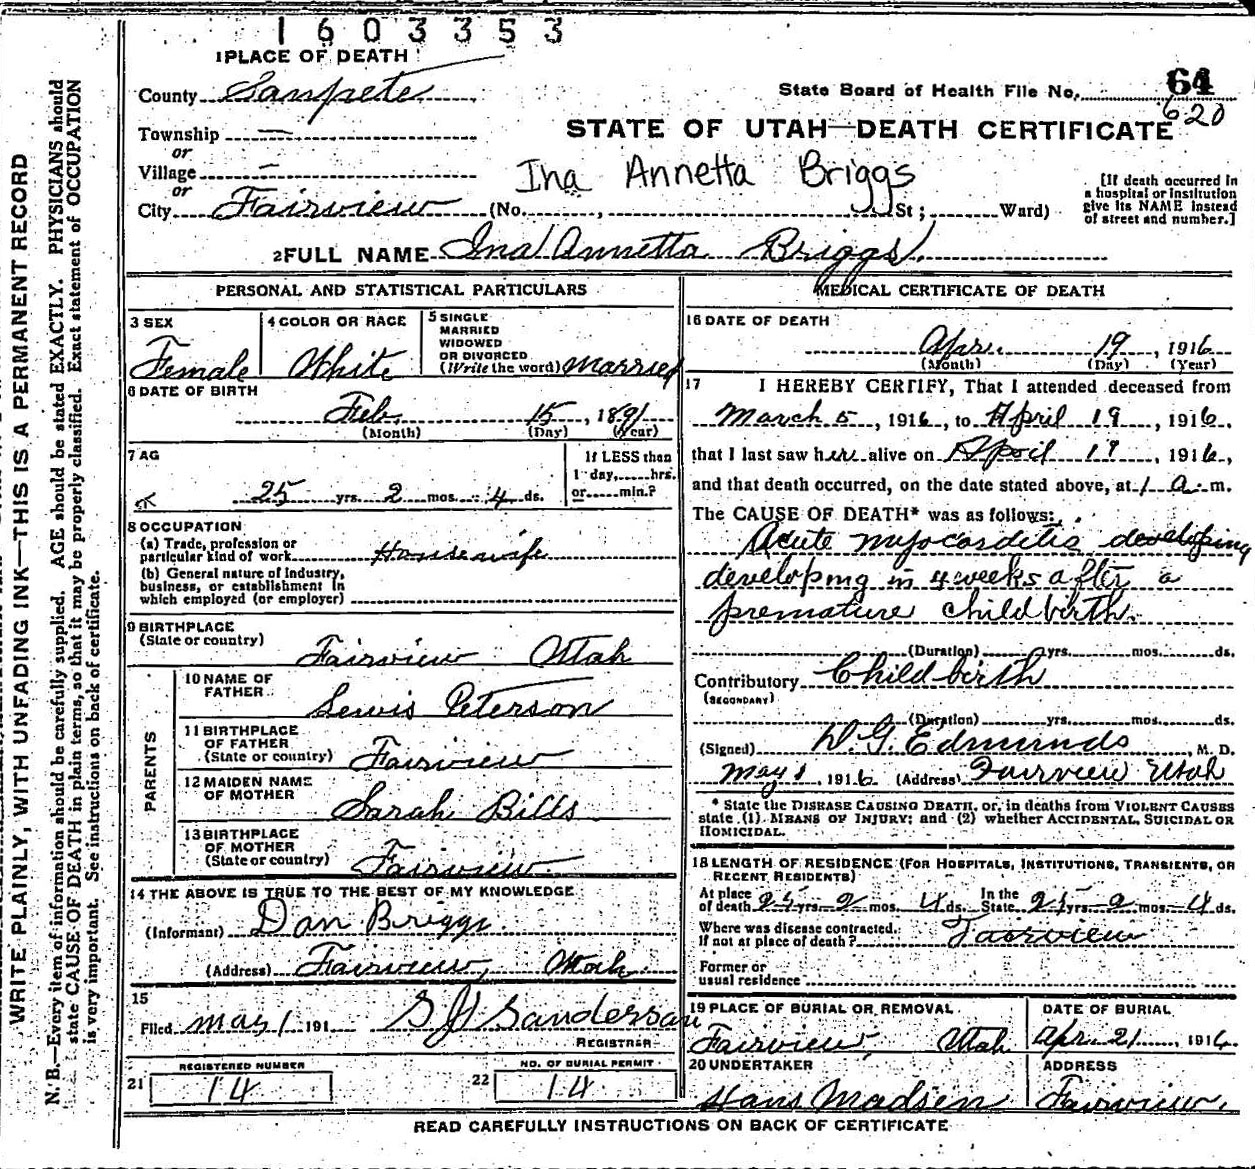 1603353
1 PLACE OF DEATH
County Sanpete
State Board of Health File No. 64
620
Township —
or
STATE OF UTAH—DEATH CERTIFICATE
Village —
or
Ina Annetta Briggs
City Fairview (No. , St; Ward)
[If death occurred in
a hospital or institution
give its NAME instead
of street and number.]
2 FULL NAME Ina Annetta Briggs.
PERSONAL AND STATISTICAL PARTICULARS
3 SEX
Female
4 COLOR OR RACE
White
5 SINGLE
MARRIED
WIDOWED
OR DIVORCED
(Write the word) Married
6 DATE OF BIRTH
Feb. 15, 1891
(Month) (Day) (Year)
7 AG
25 yrs. 2 mos. 4 ds.
If LESS than
1 day, hrs.
or min.?
8 OCCUPATION
(a) Trade, profession or
particular kind of work Housewife
(b) General nature of industry,
business, or establishment in
which employed (or employer)
9 BIRTHPLACE
(State or country)
Fairview Utah
PARENTS
10 NAME OF
FATHER
Lewis Peterson
11 BIRTHPLACE
OF FATHER
(State or country) Fairview
12 MAIDEN NAME
OF MOTHER
Sarah Bills
13 BIRTHPLACE
OF MOTHER
(State or country) Fairview
14 THE ABOVE IS TRUE TO THE BEST OF MY KNOWLEDGE
(Informant) Dan Briggs.
(Address) Fairview, Utah.
15
Filed May 1 191 S J Sanderson
REGISTRAR
REGISTERED NUMBER
21 14
NO. OF BURIAL PERMIT
22 14
MEDICAL CERTIFICATE OF DEATH
16 DATE OF DEATH
Apr. 19, 1916
(Month) (Day) (Year)
17 I HEREBY CERTIFY, That I attended deceased from
March 5, 1916, to April 19, 1916,
that I last saw her alive on April 19, 1916,
and that death occurred, on the date stated above, at 1 a. m.
The CAUSE OF DEATH* was as follows:
Acute myocarditis developing
developing in 4 weeks after a
premature childbirth.
(Duration) yrs. mos. ds.
Contributory Childbirth
(SECONDARY)
(Duration) yrs. mos. ds.
(Signed) W. G. Edmunds, M. D.
May 1, 1916 (Address) Fairview Utah
* State the DISEASE CAUSING DEATH, or, in deaths from VIOLENT CAUSES
state (1) MEANS OF INJURY; and (2) whether ACCIDENTAL, SUICIDAL OR
HOMICIDAL.
18 LENGTH OF RESIDENCE (FOR HOSPITALS, INSTITUTIONS, TRANSIENTS, OR
RECENT RESIDENTS)
At place
of death 25 yrs. 2 mos. 4 ds.
In the
State 25 yrs. 2 mos. 4 ds.
Where was disease contracted.
If not at place of death? Fairview
Former or
usual residence
19 PLACE OF BURIAL OR REMOVAL
Fairview, Utah
DATE OF BURIAL
Apr. 21, 1916
20 UNDERTAKER
Hans Madsen
ADDRESS
Fairview.
READ CAREFULLY INSTRUCTIONS ON BACK OF CERTIFICATE
WRITE PLAINLY, WITH UNFADING INK—THIS IS A PERMANENT RECORD
N. B.—Every item of information should be carefully supplied. AGE should be stated EXACTLY. PHYSICIANS should
state CAUSE OF DEATH in plain terms, so that it may be properly classified. Exact statement of OCCUPATION
is very important. See instructions on back of certificate.